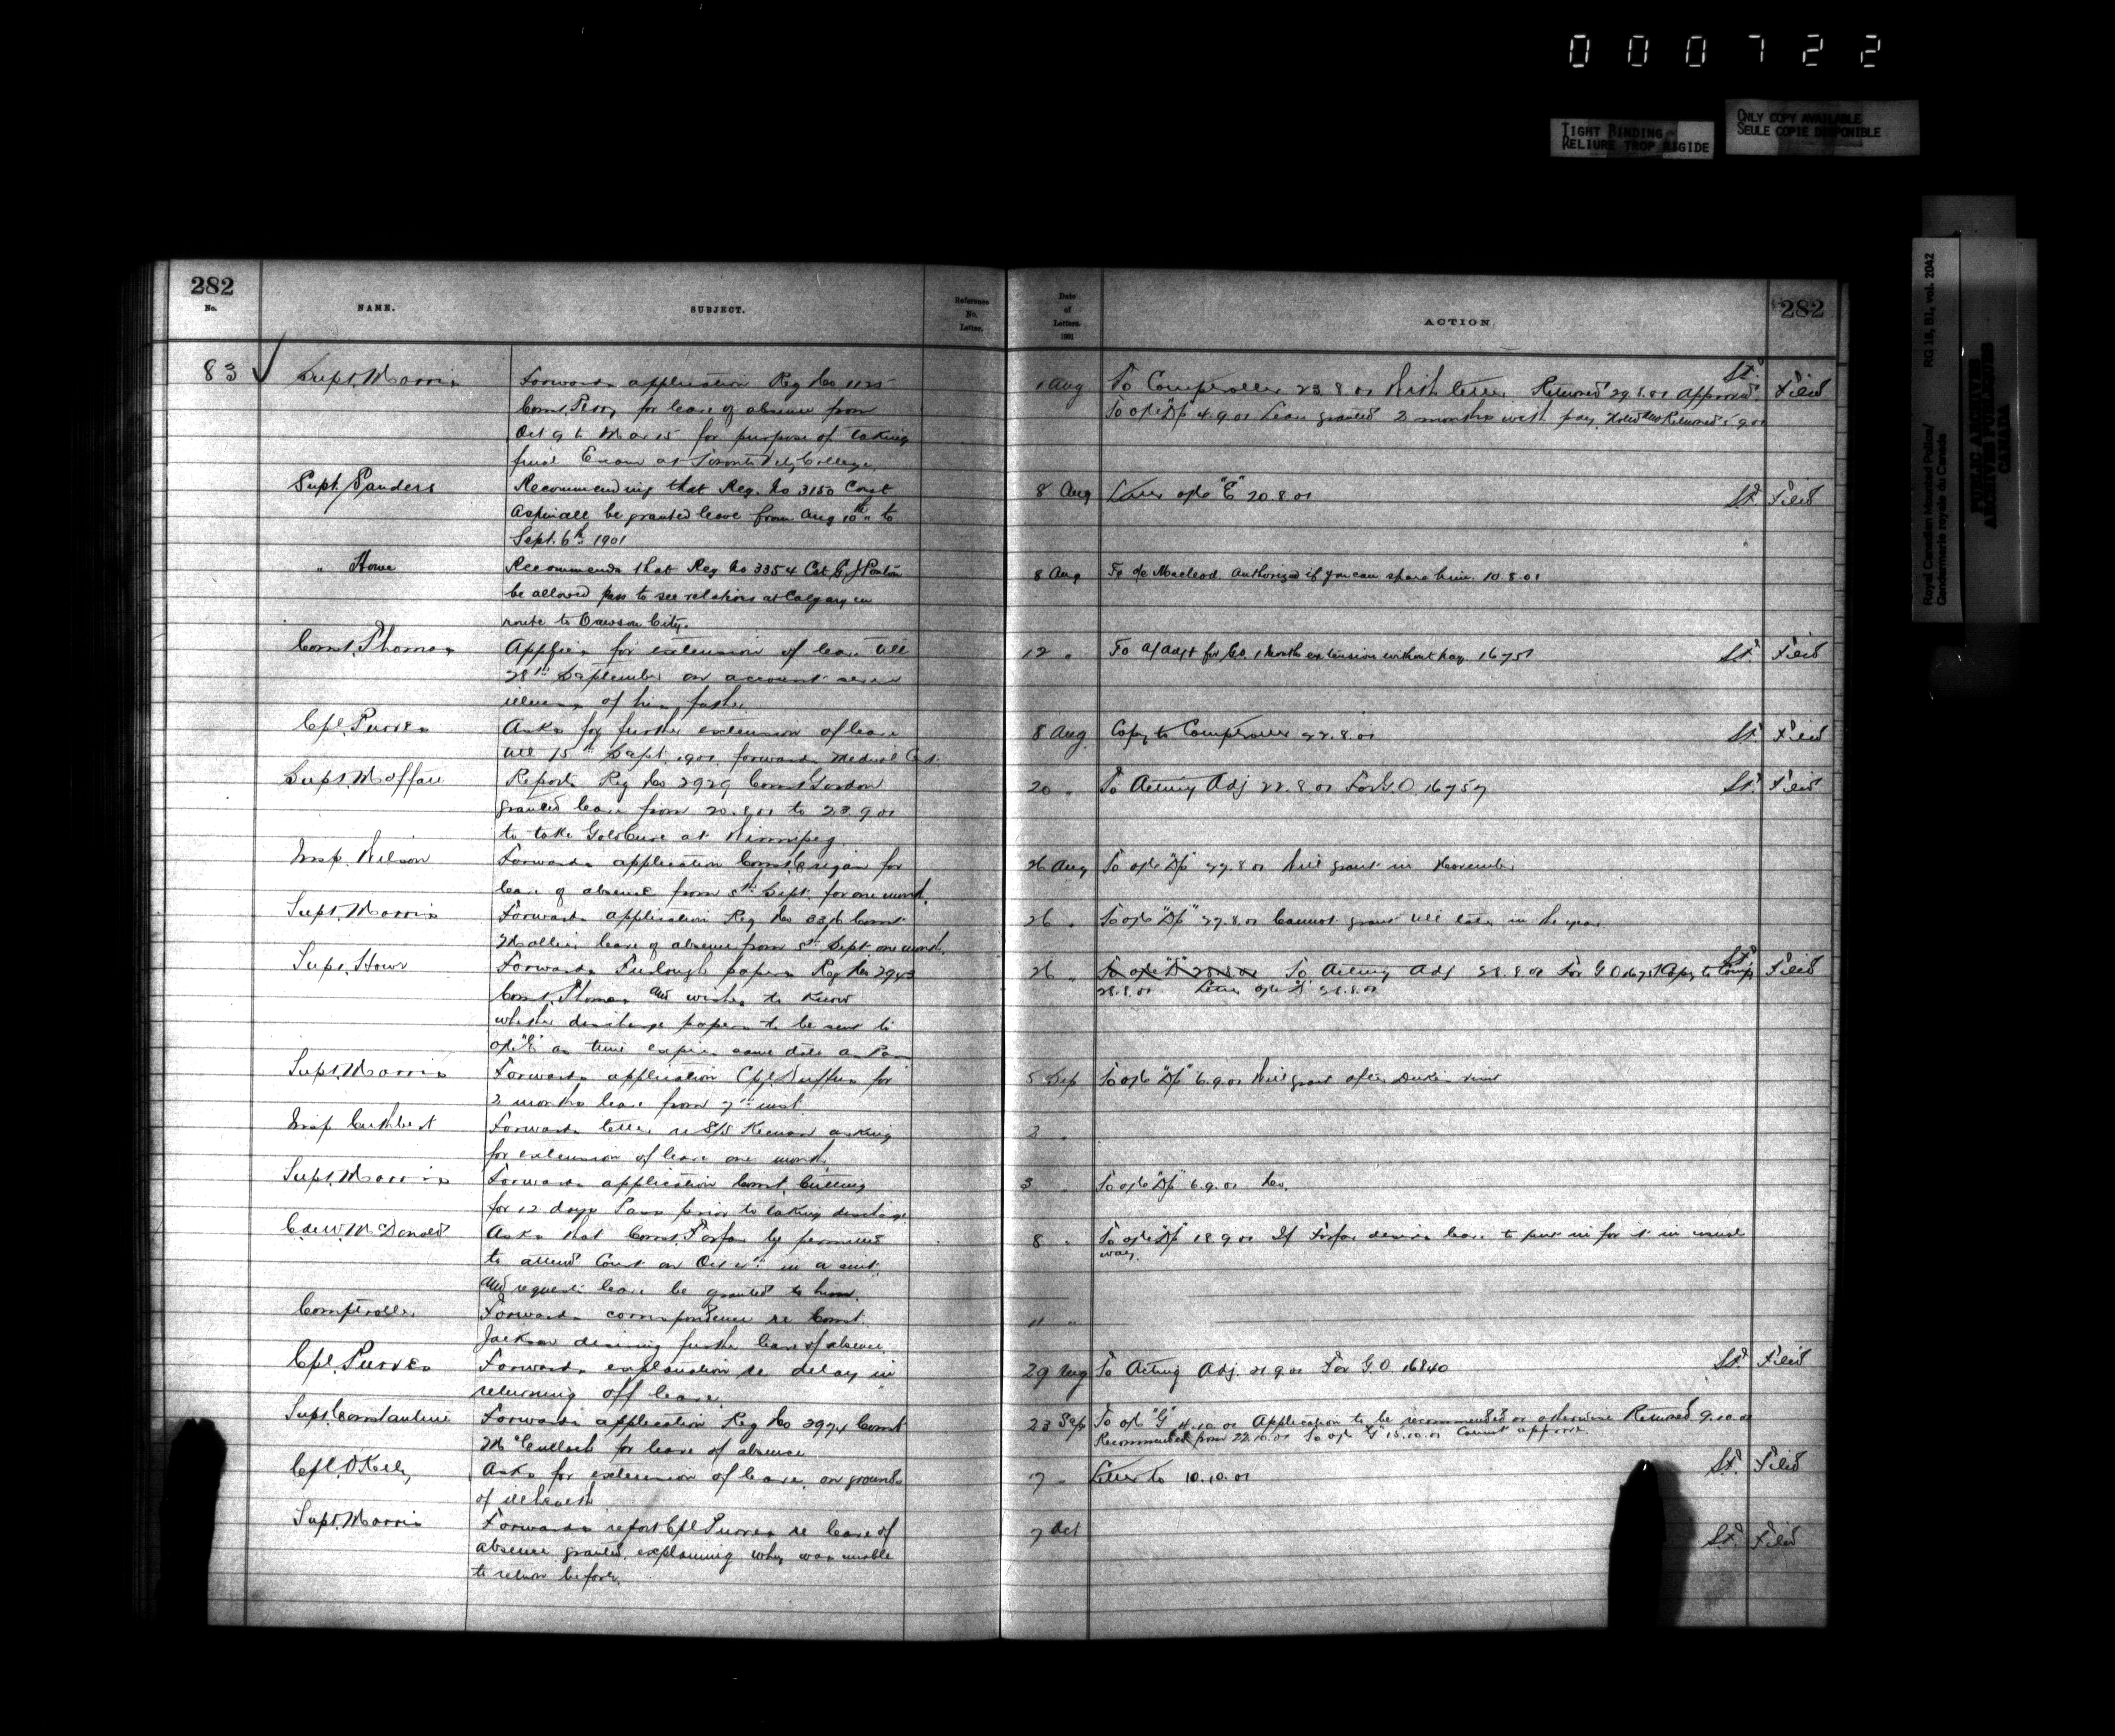 000722
TIGHT BINDING
RELIURE TROP RIGIDE
ONLY COPY AVAILABLE
SEULE COPIE DISPONIBLE
Royal Canadian Mounted Police/ RG 18, B1, vol. 2042
Gendarmerie royale du Canada
PUBLIC ARCHIVES
ARCHIVES PUBLIQUES
CANADA
282
No. NAME. SUBJECT. Reference No. Letter. Date of Letters. 1901 ACTION 282
83 Supt. Morris Forwards application Reg No 1125 1 Aug To Comptroller 23.8.01 With letter Returned 29.8.01 Approved St. Filed
Const. Perry for leave of absence from To o/c "Dp" 4.9.01 Leave granted 2 months with pay. Noted and Returned 5.9.01
Oct 9 to Mar 15 for purpose of taking
final Exam at Toronto Vety College.
Supt. Sanders Recommending that Reg. No 3150 Const 8 Aug Letter o/c "E" 20.8.01 St. Filed
Aspinall be granted leave from Aug 10th to
Sept. 6th 1901
" Howe Recommends that Reg No 3354 Cst. 8 Aug To o/c Macleod Authorized if you can spare him. 10.8.01
be allowed pass to see relations at Calgary en
route to Dawson City.
Const. Thomas Applies for extension of leave till 12 " To A/Adjt for G.O. 1 month extension without pay 16751 St. Filed
28th September on account
illness of his father.
Cpl. Purves Asks for further extension of leave 8 Aug. Copy to Comptroller 22.8.01 St. Filed
till 15th Sept. 1901. forwards Medical Cert.
Supt. Moffatt Reports Reg No 2929 Const Gordon 20 " To Acting Adj 22.8.01 For G.O. 16757 St. Filed
granted leave from 20.8.01 to 23.9.01
to take Gold Cure at Winnipeg.
Insp. Wilson Forwards application Const. for 26 Aug To o/c "Dp" 27.8.01 Will grant in November
leave of absence from 5th Sept. for one month.
Supt. Morris Forwards application Reg No Const 26 " To o/c "Dp" 27.8.01 Cannot grant till later in the year
leave of absence from 5th Sept one month.
Supt. Howe Forwards Furlough papers Reg No 2943 26 " To o/c "D" 28.8.01 To Acting Adj 28.8.01 For G.O 16751 Copy to Comp. St. Filed
Const. Thomas and wishes to know 28.8.01 Letter o/c "D" 28.8.01
whether discharge papers to be sent to
o/c "E" as time expires same date as Pass
Supt. Morris Forwards application Cpl. Duffus for 5 Sep To o/c "Dp" 6.9.01 Will grant after Duke's visit
2 months leave from 7th inst.
Insp Cuthbert Forwards letter re S/S Keenan asking 2 "
for extension of leave one month.
Supt. Morris Forwards application Const. Cutting 3 " To o/c "Dp" 6.9.01 No.
for 12 days Pass prior to taking discharge.
McDonald Asks that Const. Forfar be permitted 8 " To o/c "Dp" 18.9.01 If Forfar desires leave to put in for it in usual
to attend Court on Oct in a suit way.
and requests leave be granted to him.
Comptroller Forwards correspondence re Const. 11 "
Jackson desiring further leave of absence.
Cpl. Purves Forwards explanation re delay in 29 Aug To Acting Adj. 21.9.01 For G.O. 16840 St. Filed
returning off leave.
Supt. Constantine Forwards application Reg No 2974 Const 23 Sep To o/c "G" 4.10.01 Application to be recommended or otherwise Returned 9.10.01
McCulloch for leave of absence Recommended from 22.10.01 To o/c "G" 15.10.01 Cannot approve.
Cpl. O'Kelly Asks for extension of leave, on grounds 17 " Letter to 10.10.01 St. Filed
of ill health
Supt. Morris Forwards report Cpl Purves re leave of 7 Oct St. Filed
absence granted, explaining why was unable
to return before.